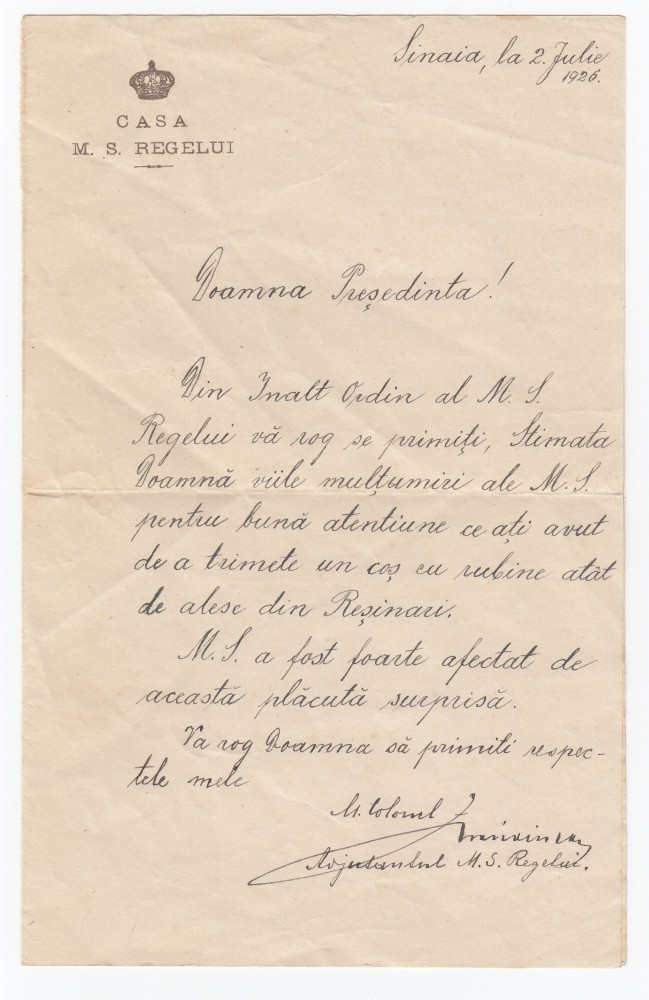 Sinaia, la 2. Julie
1926.
CASA
M. S. REGELUI
Doamna Preşedinta!
Din Inalt Ordin al M. S.
Regelui vă rog se primiţi, Stimata
Doamnă viile mulţumiri ale M. S.
pentru bună atentiune ce aţi avut
de a trimete un coş cu rubine atât
de alese din Reşinari.
M. S. a fost foarte afectat de
această plăcută surprisă.
Va rog Doamna să primiti respec-
tele mele
Lt. Colonel
Adjutantul M. S. Regelui.